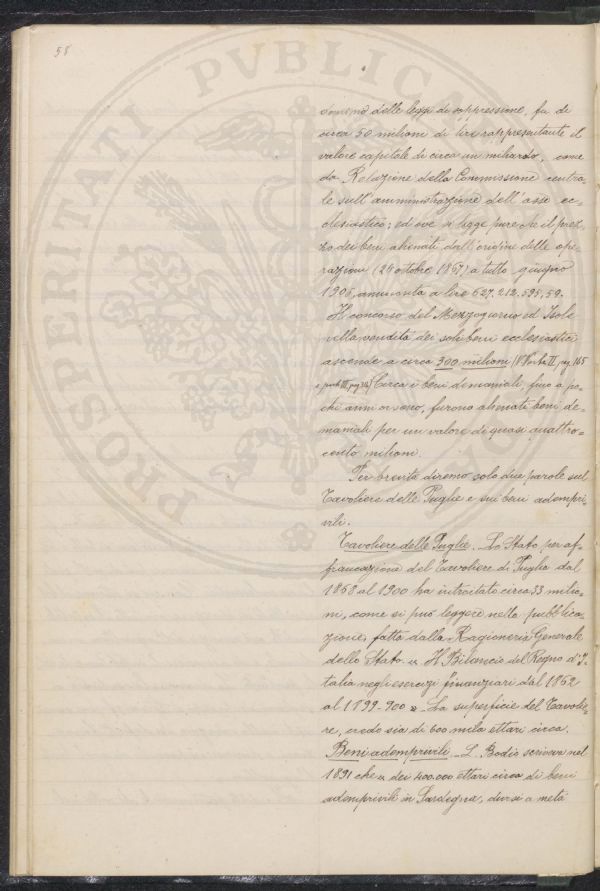 58
PROSPERITATI PVBLICAE
delle leggi di soppressione, fu di
circa 50 milioni di lire rappresentante il
valore capitale di circa un miliardo, come
da Relazione della Commissione centra-
le sull'amministrazione dell'asse ec-
clesiastico; ed ove si legge pure che il prez-
zo dei beni alienati dall'origine delle ope-
razioni (26 ottobre 1867) a tutto giugno
1906, ammonta a lire 627.212.595,59.
Il concorso del Mezzogiorno ed Isole
nella vendita dei soli beni ecclesiastici
ascende a circa 300 milioni (V. Parte II, pag. 165
e parte III, pag. ) Circa i beni demaniali, fino a po-
chi anni or sono, furono alienati beni de-
maniali per un valore di quasi quattro-
cento milioni.
Per brevità diremo solo due parole sul
Tavoliere delle Puglie e sui beni adempri-
vili.
Tavoliere delle Puglie. Lo Stato per af-
francazione del Tavoliere di Puglia dal
1868 al 1900 ha introitato circa 33 milio-
ni, come si può leggere nella pubblica-
zione, fatta dalla Ragioneria Generale
dello Stato. « Il Bilancio del Regno d'I-
talia negli esercizi finanziari dal 1862
al 1899-900 ». La superficie del Tavolie-
re, credo sia di 600 mila ettari circa.
Beni ademprivili. L. Bodio scriveva nel
1891 che « dei 400.000 ettari circa di beni
ademprivili in Sardegna, diversi a metà